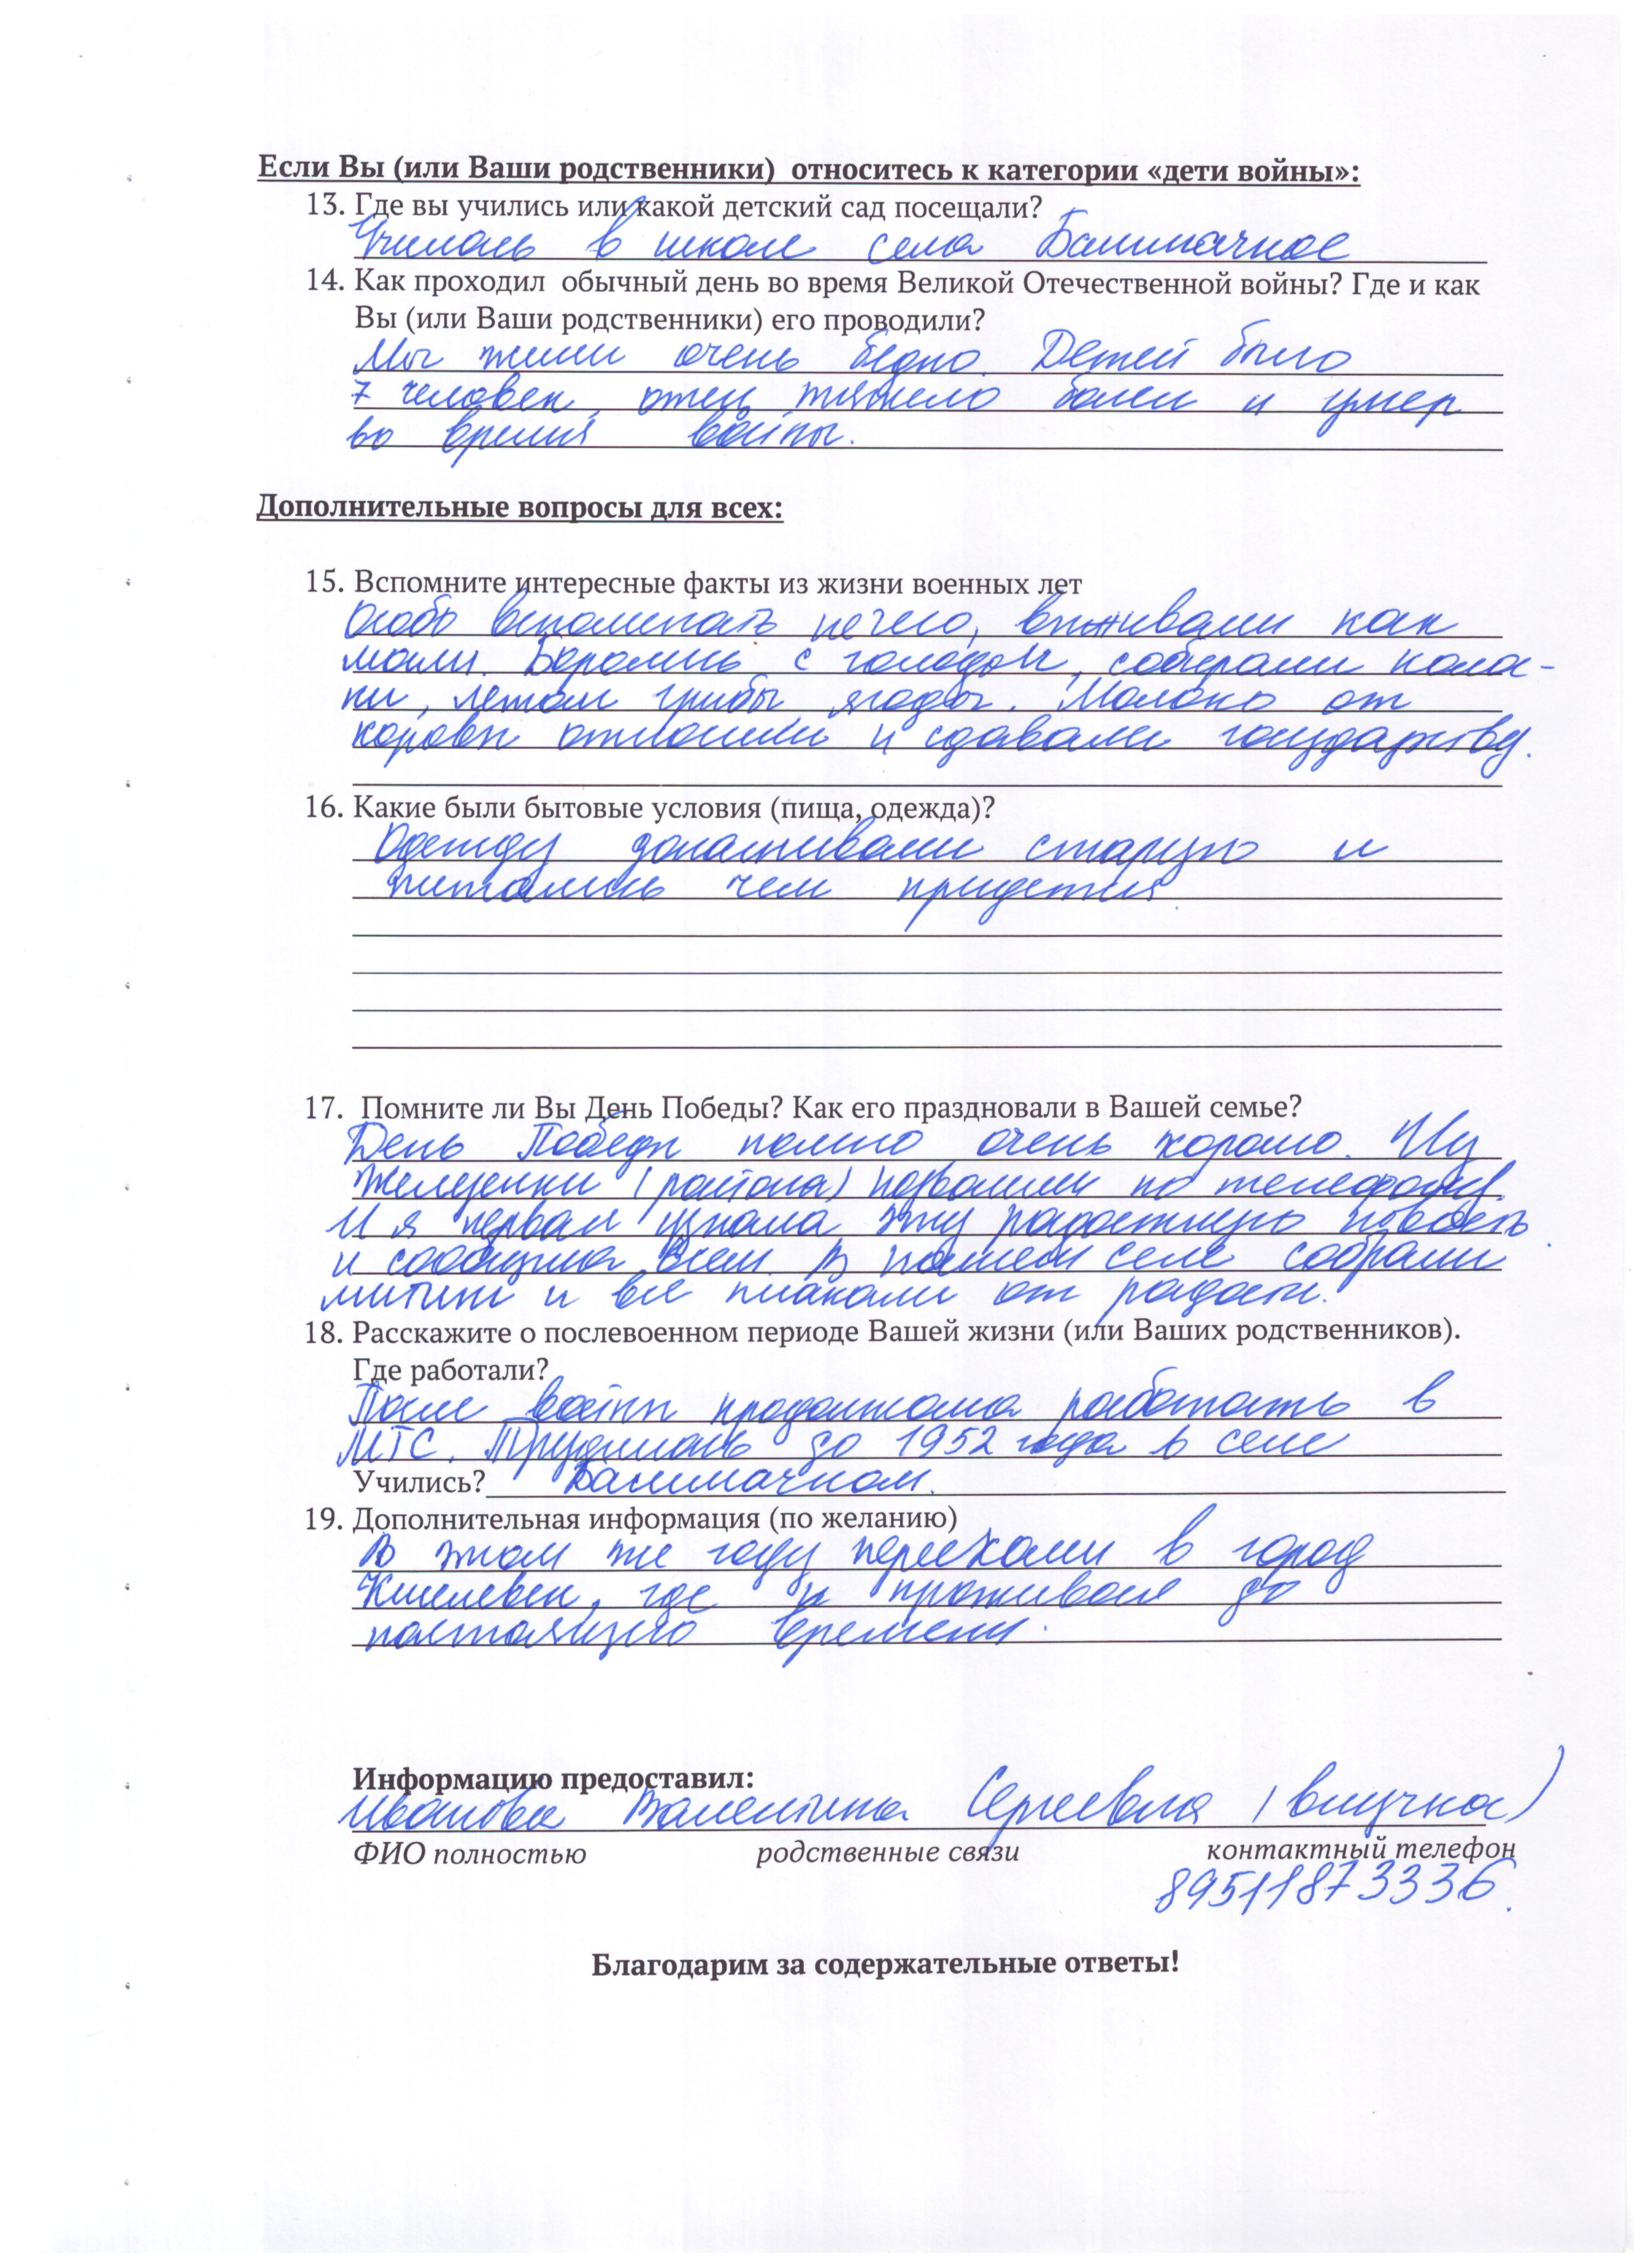 Если Вы (или Ваши родственники) относитесь к категории «дети войны»:
13. Где вы учились или какой детский сад посещали?
Училась в школе села Башмачное
14. Как проходил обычный день во время Великой Отечественной войны? Где и как
Вы (или Ваши родственники) его проводили?
Мы жили очень бедно. Детей было
7 человек, отец тяжело болел и умер
во время войны.
Дополнительные вопросы для всех:
15. Вспомните интересные факты из жизни военных лет
Особо вспоминать нечего, выживали как
могли. Боролись с голодом, собирали
летом грибы, ягоды. Молоко от
коровы относили и сдавали государству.
16. Какие были бытовые условия (пища, одежда)?
Одежду донашивали старую и
питались чем придется.
17. Помните ли Вы День Победы? Как его праздновали в Вашей семье?
День Победы помню очень хорошо. Из
(района) позвонили по телефону.
И я первая узнала эту радостную новость
и сообщила всем. В нашем селе собрали
митинг и все плакали от радости.
18. Расскажите о послевоенном периоде Вашей жизни (или Ваших родственников).
Где работали?
После войны продолжала работать в
МТС. Трудилась до 1952 года в селе
Учились? Башмачном.
19. Дополнительная информация (по желанию)
В этом же году переехали в город
Киселевск, где и проживаем до
настоящего времени.
Информацию предоставил:
Иванова Валентина Сергеевна (внучка)
ФИО полностью родственные связи контактный телефон
89511873336.
Благодарим за содержательные ответы!